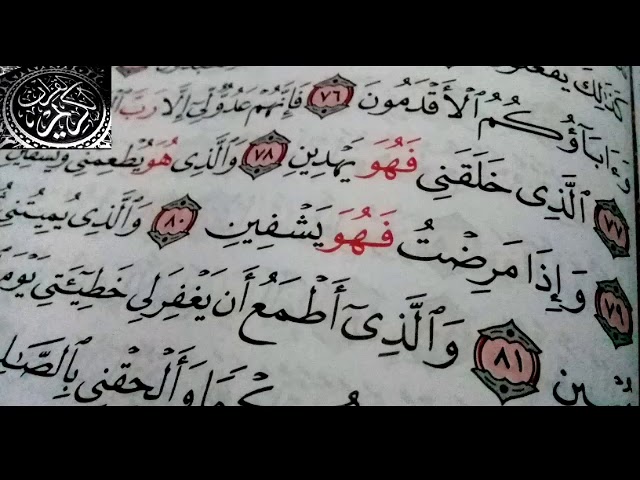 كَذَٰلِكَ يَفْعَلُو
وَءَابَآؤُكُمُ ٱلْأَقْدَمُونَ ٧٦ فَإِنَّهُمْ عَدُوٌّ لِّىٓ إِلَّا رَبَّ
٧٧ ٱلَّذِى خَلَقَنِى فَهُوَ يَهْدِينِ ٧٨ وَٱلَّذِى هُوَ يُطْعِمُنِى وَيَسْقِينِ
٧٩ وَإِذَا مَرِضْتُ فَهُوَ يَشْفِينِ ٨٠ وَٱلَّذِى يُمِيتُنِى
٨١ وَٱلَّذِىٓ أَطْمَعُ أَن يَغْفِرَ لِى خَطِيٓـَٔتِى يَوْمَ
وَأَلْحِقْنِى بِٱلصَّـٰلِ